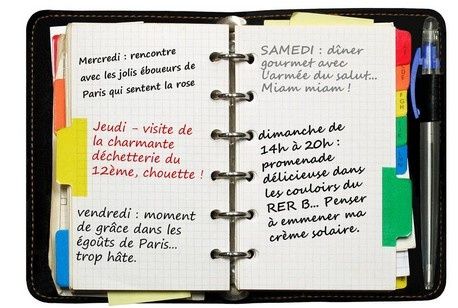 Mercredi : rencontre
avec les jolis éboueurs de
Paris qui sentent la rose
Jeudi - visite de
la charmante
déchetterie du
12ème, chouette !
vendredi : moment
de grâce dans les
égoûts de Paris...
trop hâte.
SAMEDI : dîner
gourmet avec
l'armée du salut...
Miam miam !
dimanche de
14h à 20h :
promenade
délicieuse dans
les couloirs du
RER B... Penser
à emmener ma
crème solaire.